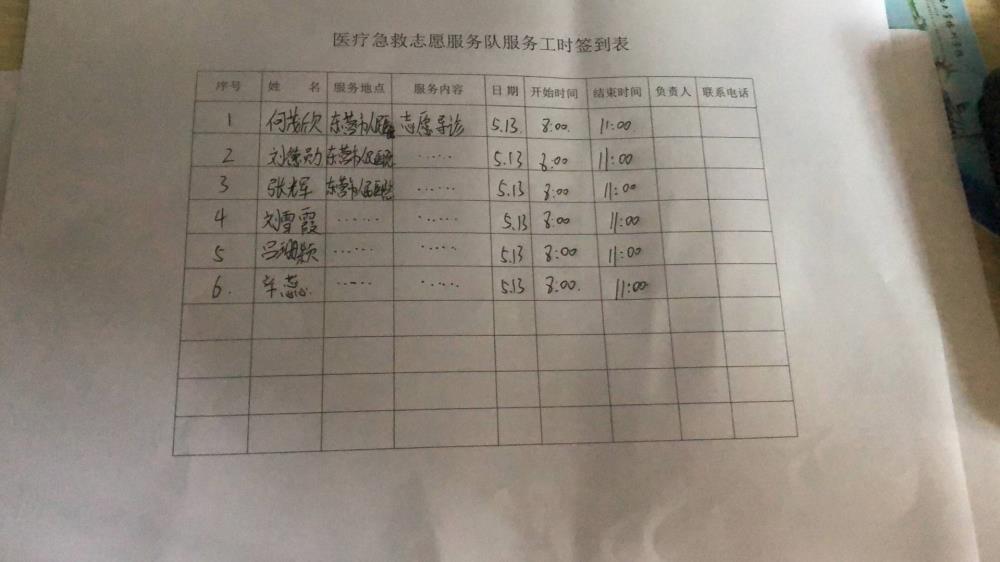 医疗急救志愿服务队服务工时签到表
序号 姓 名 服务地点 服务内容 日期 开始时间 结束时间 负责人 联系电话
1 何茂欣 东营市人民医院 志愿导诊 5.13 8:00. 11:00
2 刘德勋 东营市人民医院 ...... 5.13 8:00 11:00
3 张光辉 东营市人民医院 ...... 5.13 8:00 11:00
4 刘雪霞 ...... ...... 5.13 8:00 11:00
5 吕颖 ...... ...... 5.13 8:00 11:00
6. 辛蕊 ...... ...... 5.13 8:00. 11:00